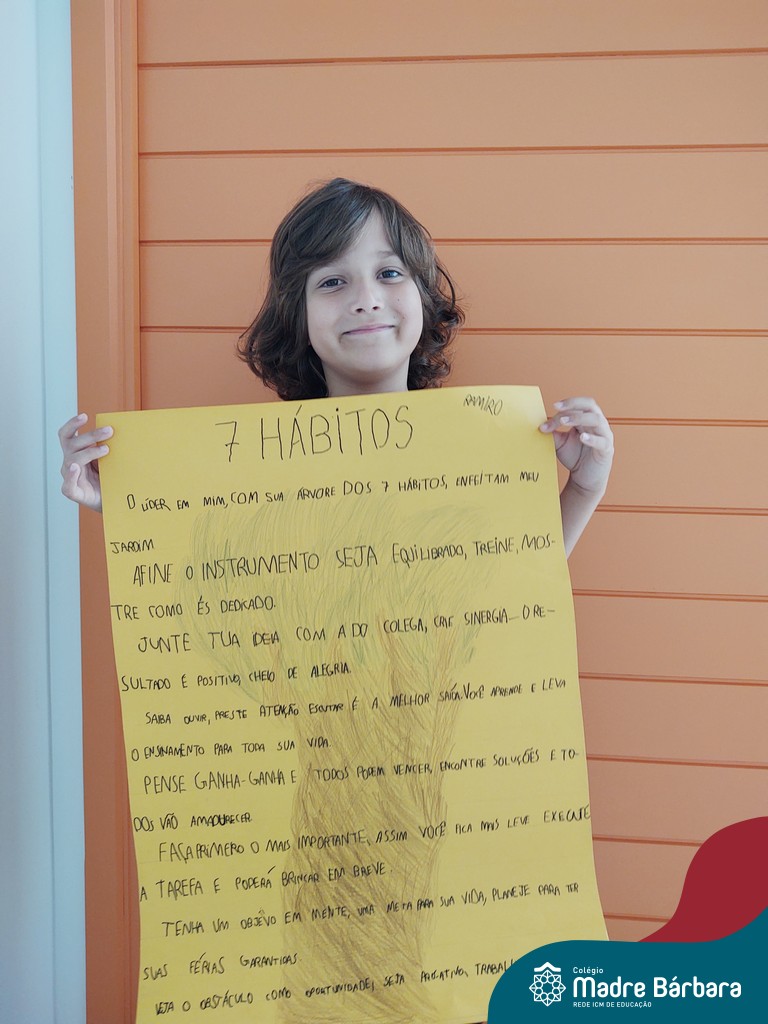 RAMIRO
7 HÁBITOS
O LÍDER EM MIM, COM SUA ÁRVORE DOS 7 HÁBITOS, ENFEITAM MEU
JARDIM
AFINE O INSTRUMENTO SEJA EQUILIBRADO, TREINE, MOS-
TRE COMO ÉS DEDICADO.
JUNTE TUA IDEIA COM A DO COLEGA, CRIE SINERGIA_ O RE-
SULTADO É POSITIVO, CHEIO DE ALEGRIA.
SAIBA OUVIR, PRESTE ATENÇÃO ESCUTAR É A MELHOR SAÍDA. VOCÊ APRENDE E LEVA
O ENSINAMENTO PARA TODA SUA VIDA.
PENSE GANHA-GANHA E TODOS PODEM VENCER, ENCONTRE SOLUÇÕES E TO-
DOS VÃO AMADURECER.
FAÇA PRIMEIRO O MAIS IMPORTANTE, ASSIM VOCÊ FICA MAIS LEVE EXECUTE
A TAREFA E PODERÁ BRINCAR EM BREVE.
TENHA UM OBJÊVO EM MENTE, UMA META PARA SUA VIDA, PLANEJE PARA TER
SUAS FÉRIAS GARANTIDAS.
VEJA O OBSTÁCULO COMO OPORTUNIDADE, SEJA PROATIVO,
Colégio
Madre Bárbara
REDE ICM DE EDUCAÇÃO